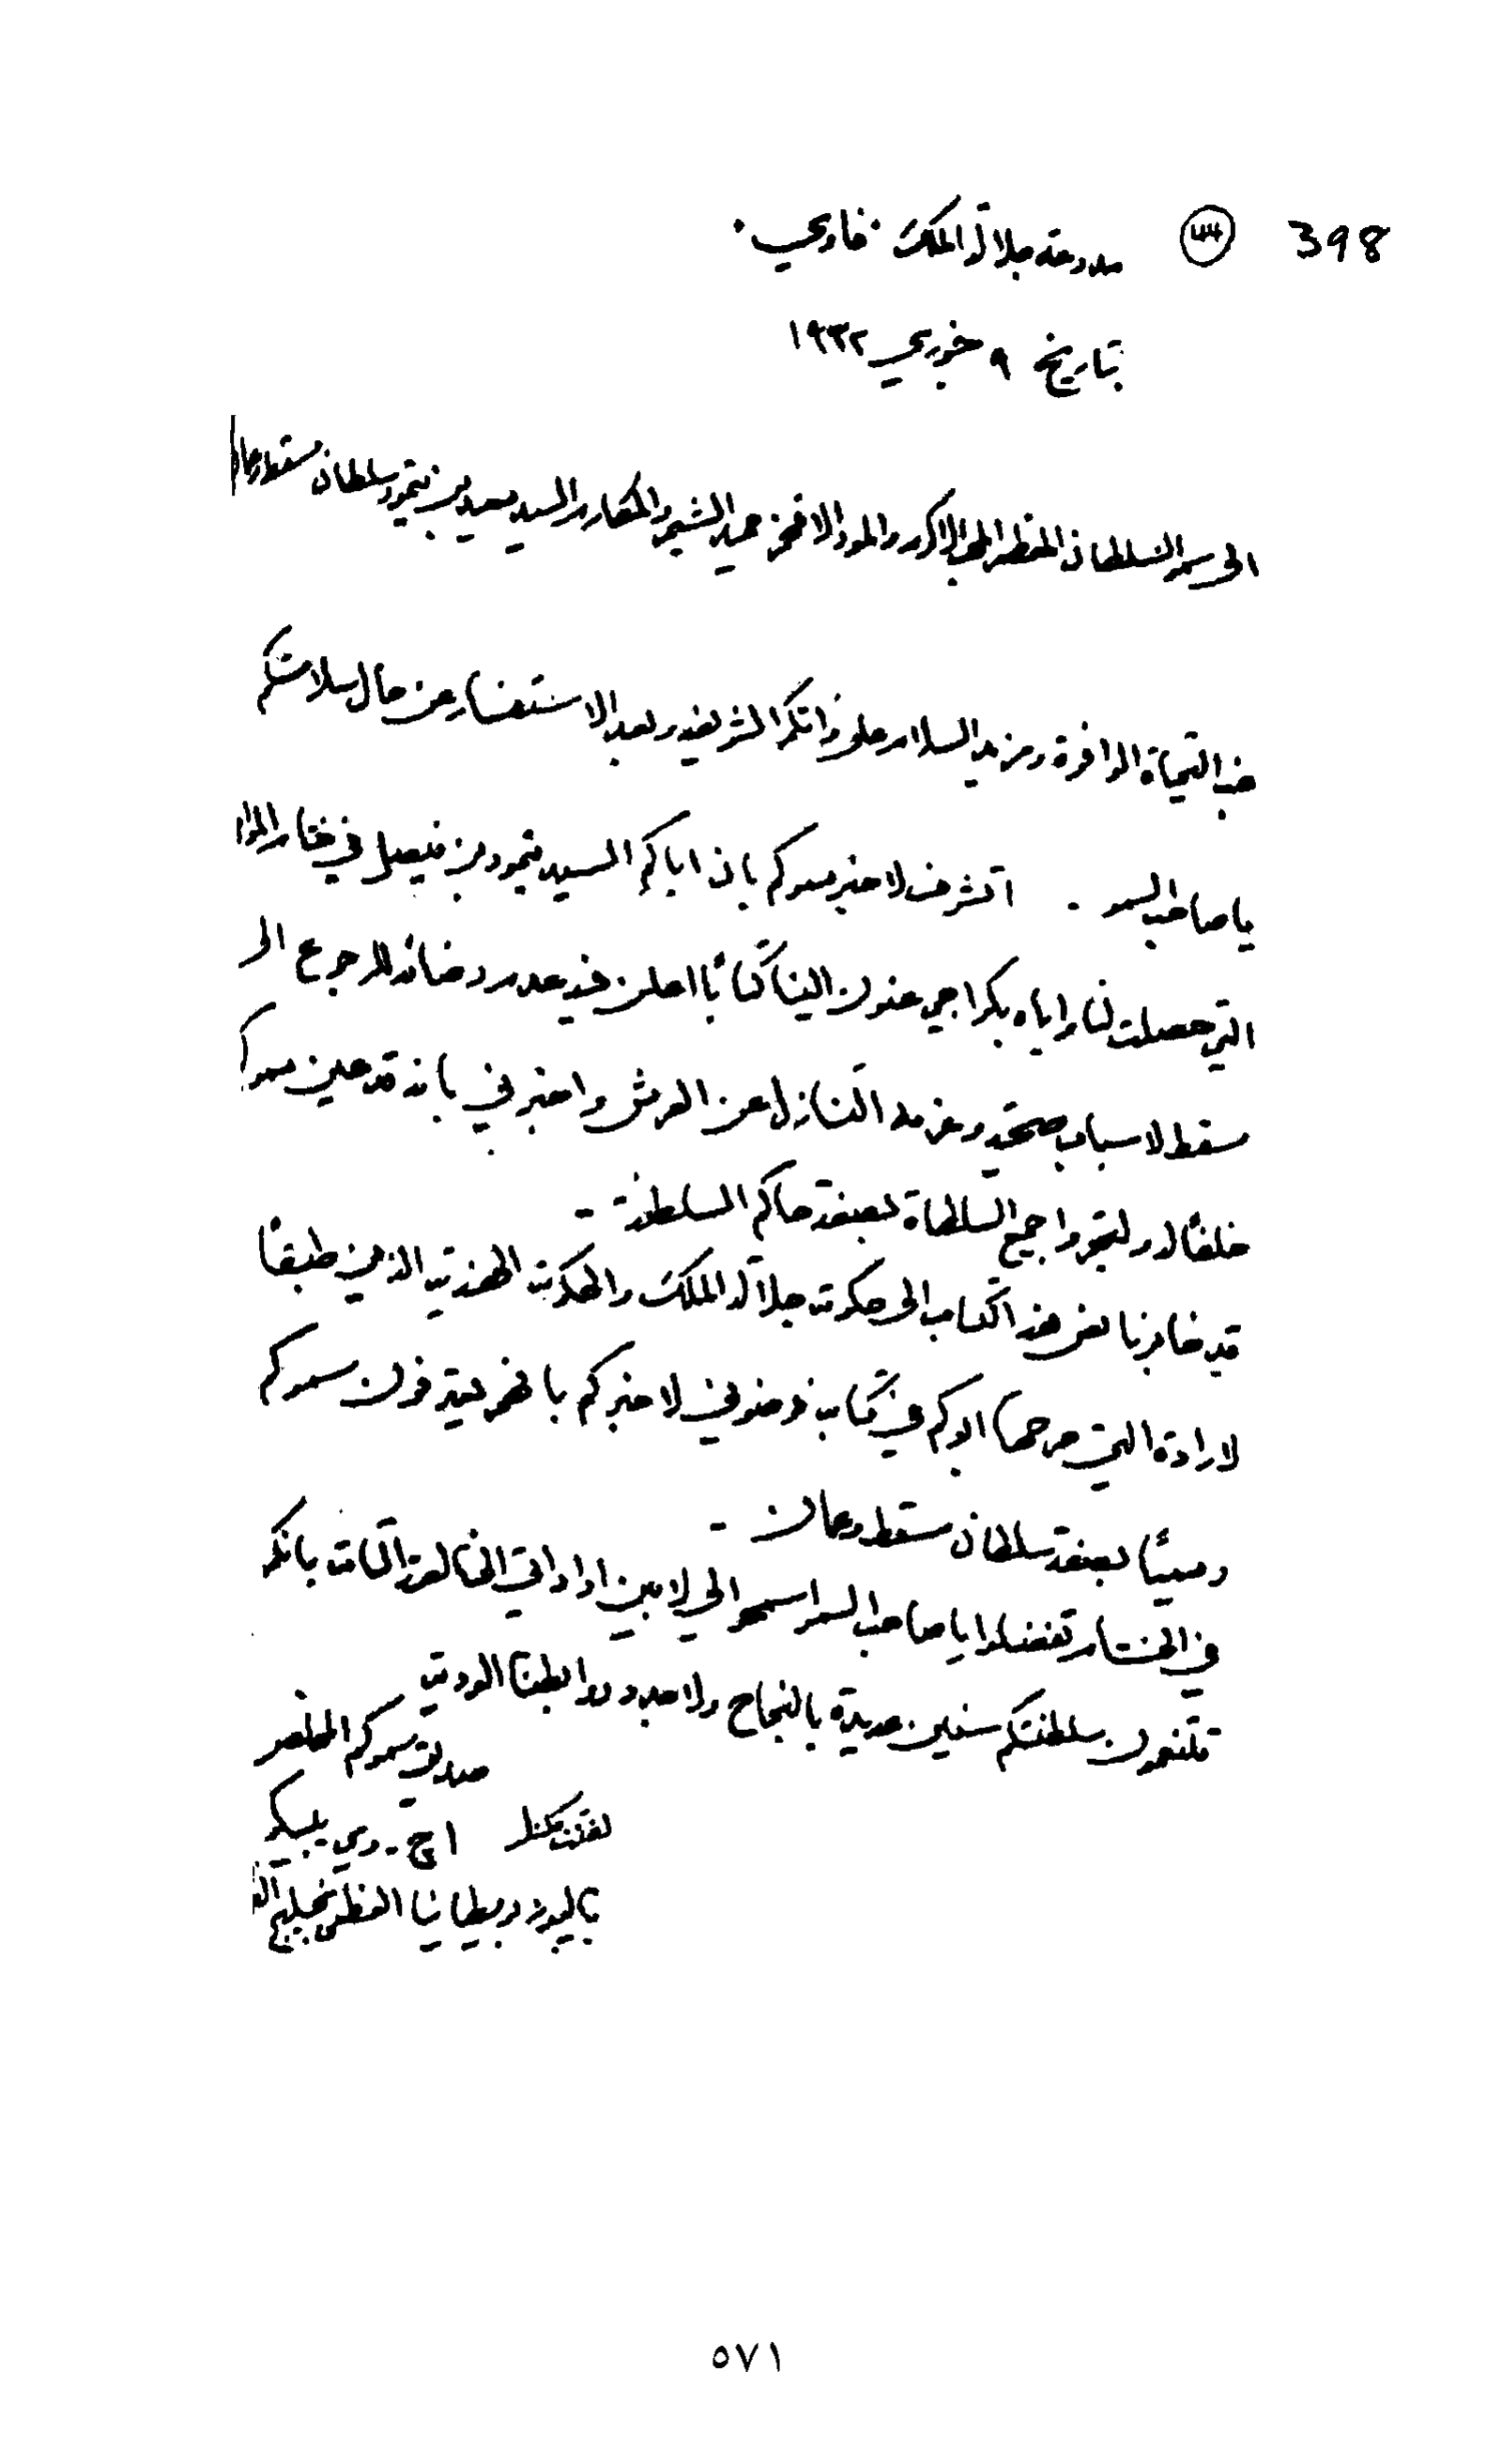 398 ٤٤ مدرعة جلالة الملك . فاوي .
تاريخ ٩ فبروري ١٩٣٢
الى سمو السلطان المعظم المحب الاكرم والمود الافخم حميد الشيم والمكارم السيد سعيد بن تيمور سلطان مسقط وعمان
غب التحياة الوافرة ومزيد السلام على ذاتكم الشريفه وبعد الاستفسار عن حال سلامتكم
يا صاحب السمو . اتشرف لاخبر سموكم بان اباكم السيد تيمور بن فيصل في ختام
التي حصلت لنا واياه بكراجي عنون الينا كتابًا اعلن فيه عدم رضائه للرجوع الى
مسقط لاسباب صحته وعزمه التنازل عن العرش واخبرني بانه قد عين سموكم
خلفًا له ولتجروا جميع السلطاة بصفة حاكم السلطنة -
قد خابرنا نص هذا الكتاب الى حكومت جلالة الملك والحكومت الهندية الذين طبقًا
لارادة التي صرحها ابوكم في كتابه فوضوني لاخبركم بانهم يعترفون سموكم
رسميًا بصفة سلطان مسقط وعمان -
في الختام تفضلوا يا صاحب السمو اسمحوا لي لابين اراداتي الخالصة التامة بانكم
تتمتعون بسلطنتكم سنين عديدة بالنجاح ولاصدود روابطنا الودية
صديق سموكم المخلص
لفتننت كرنل اچ . وي . بسكو
باليوز دولة بريطانيا العظمى بخليج
٥٧١